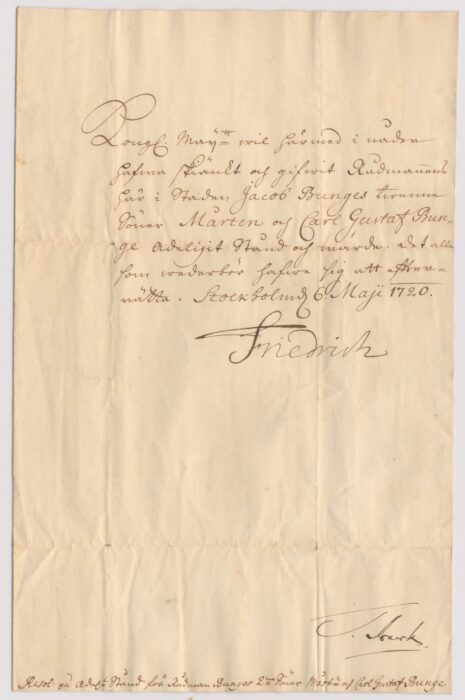 Kongl: Maij:tt wil härmed i nåder
hafwa skiänkt och gifwit Rådmannens
här i Staden Jacob Bunges twenne
Söner Mårten och Carl Gustaf Bun-
ge Adeligit Stånd och wärde. Det alle
som wederbör hafwe sig att effter-
rätta. Stockholm d. 6. Maji 1720.
Friedrich
Resol: på Adel:t Stånd för Rådman Bunges 2:ne Söner Mårten och Carl Gustaf Bunge